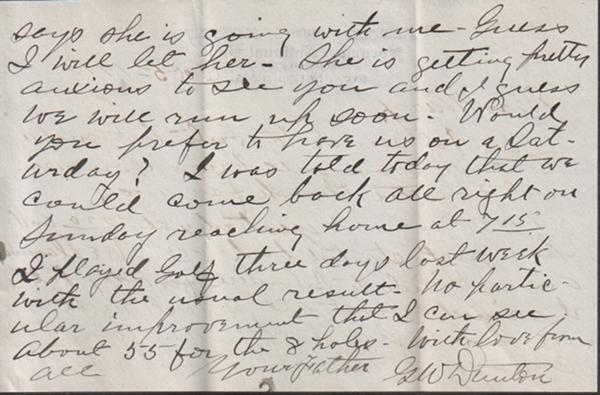 says she is going with me - Guess
I will let her - She is getting pretty
anxious to see you and I guess
we will run up soon - Would
you prefer to have us on a Sat-
urday? I was told today that we
could come back all right on
Sunday reaching home at 7 15
I played Golf three days last week
with the usual result - No partic-
ular improvement that I can see
about 55 for the 8 holes - With love from
all Your Father GW Dunton